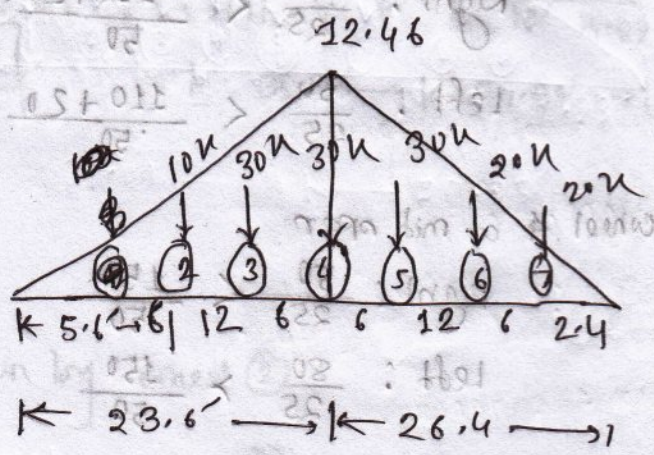 12.46
10k 30k 30k 30k 20k 20k
2 3 4 5 6 7
5.6 6 12 6 6 12 6 2.4
23.6 26.4